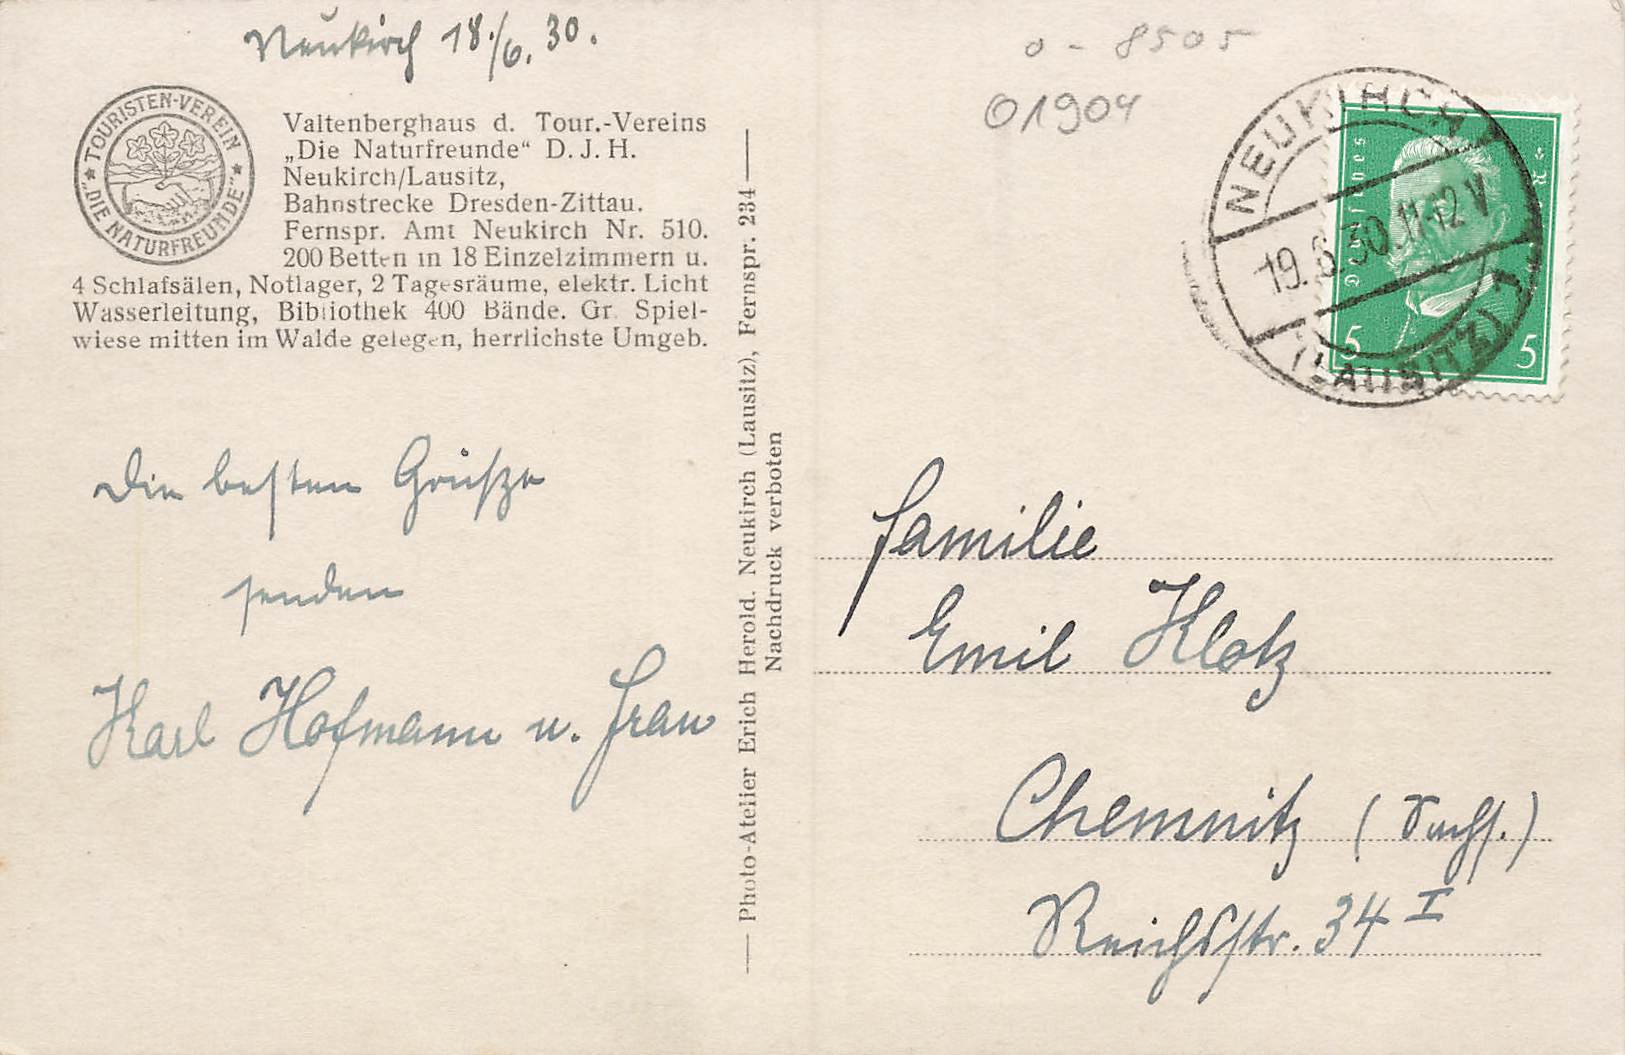 Neukirch 18./6. 30.
0 - 8505
01904
TOURISTEN-VEREIN
"DIE NATURFREUNDE"
Valtenberghaus d. Tour.-Vereins
„Die Naturfreunde“ D. J. H.
Neukirch/Lausitz,
Bahnstrecke Dresden-Zittau.
Fernspr. Amt Neukirch Nr. 510.
200 Betten in 18 Einzelzimmern u.
4 Schlafsälen, Notlager, 2 Tagesräume, elektr. Licht
Wasserleitung, Bibliothek 400 Bände. Gr. Spiel-
wiese mitten im Walde gelegen, herrlichste Umgeb.
Die besten Grüße
senden
Karl Hofmann u. Frau
— Photo-Atelier Erich Herold. Neukirch (Lausitz), Fernspr. 234 —
Nachdruck verboten
NEUKIRCH
19.6.30.11-12 V
(LAUSITZ)
5 5
Familie
Emil Klotz
Chemnitz (Sachs.)
Reichsstr. 34 I